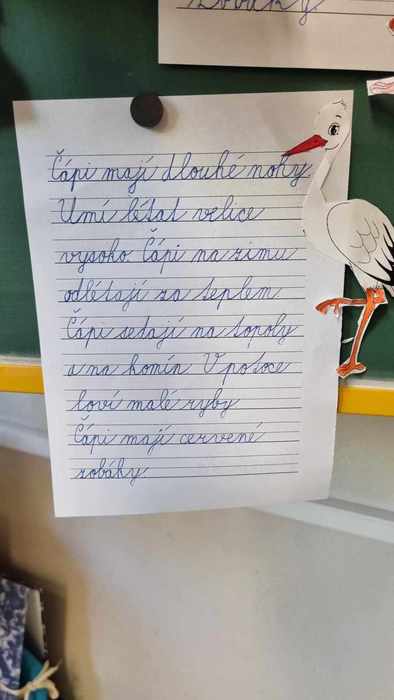 Zobáky
Čápi mají dlouhé nohy
Umí létat velice
vysoko. Čápi na zimu
odlétají za teplem
Čápi sedají na topoly
a na komín V potoce
loví malé ryby
Čápi mají cervené
zobáky.